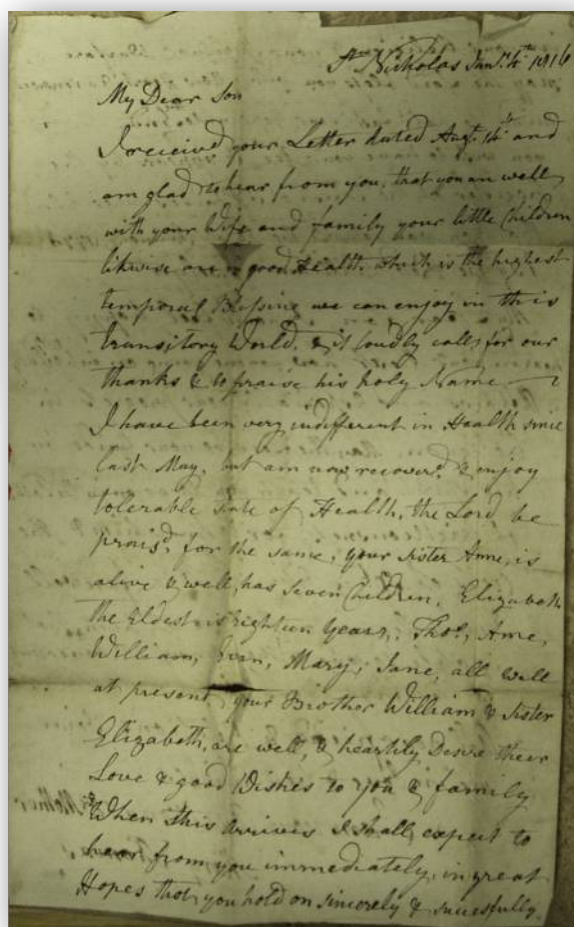 St Nicholas Jany. 4th 1816
My Dear Son
I received your Letter dated Augt. 14th and
am glad to hear from you, that you are well
with your Wife and family your little Children
likwise are in good Health, which is the highest
temporal Blessing we can enjoy in this
transitory World, & it loudly calls for our
thanks & to praise his holy Name
I have been very indifferent in Health since
last May, but am now recoverd, & enjoy
tolerable State of Health, the Lord be
praisd, for the same, your Sister Anne, is
alive & well, has seven Children, Elizabeth
the Eldest is Eighteen Years, Thos, Anne,
William, Mary, Jane, all well
at present, your Brother William & Sister
Elizabeth, are well, & heartily Desire their
Love & good Wishes to you & family
When this arrives I shall expect to
hear from you immediately, in great
Hopes that you hold on sincerely & sucessfully